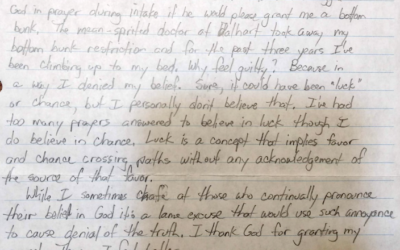 God in prayer during intake if he would please grant me a bottom
bunk. The mean-spirited doctor of Dalhart took away my
bottom bunk restriction and for the past three years I've
been climbing up to my bed. Why feel guilty? Because in
a way I denied my belief. Sure, it could have been "luck"
or chance, but I personally don't believe that. I've had
too many prayers answered to believe in luck though I
do believe in chance. Luck is a concept that implies favor
and chance crossing paths without any acknowledgement of
the source of that favor.
While I sometimes chafe at those who continually pronounce
their belief in God it's a lame excuse that would use such annoyance
to cause denial of the truth. I thank God for granting my